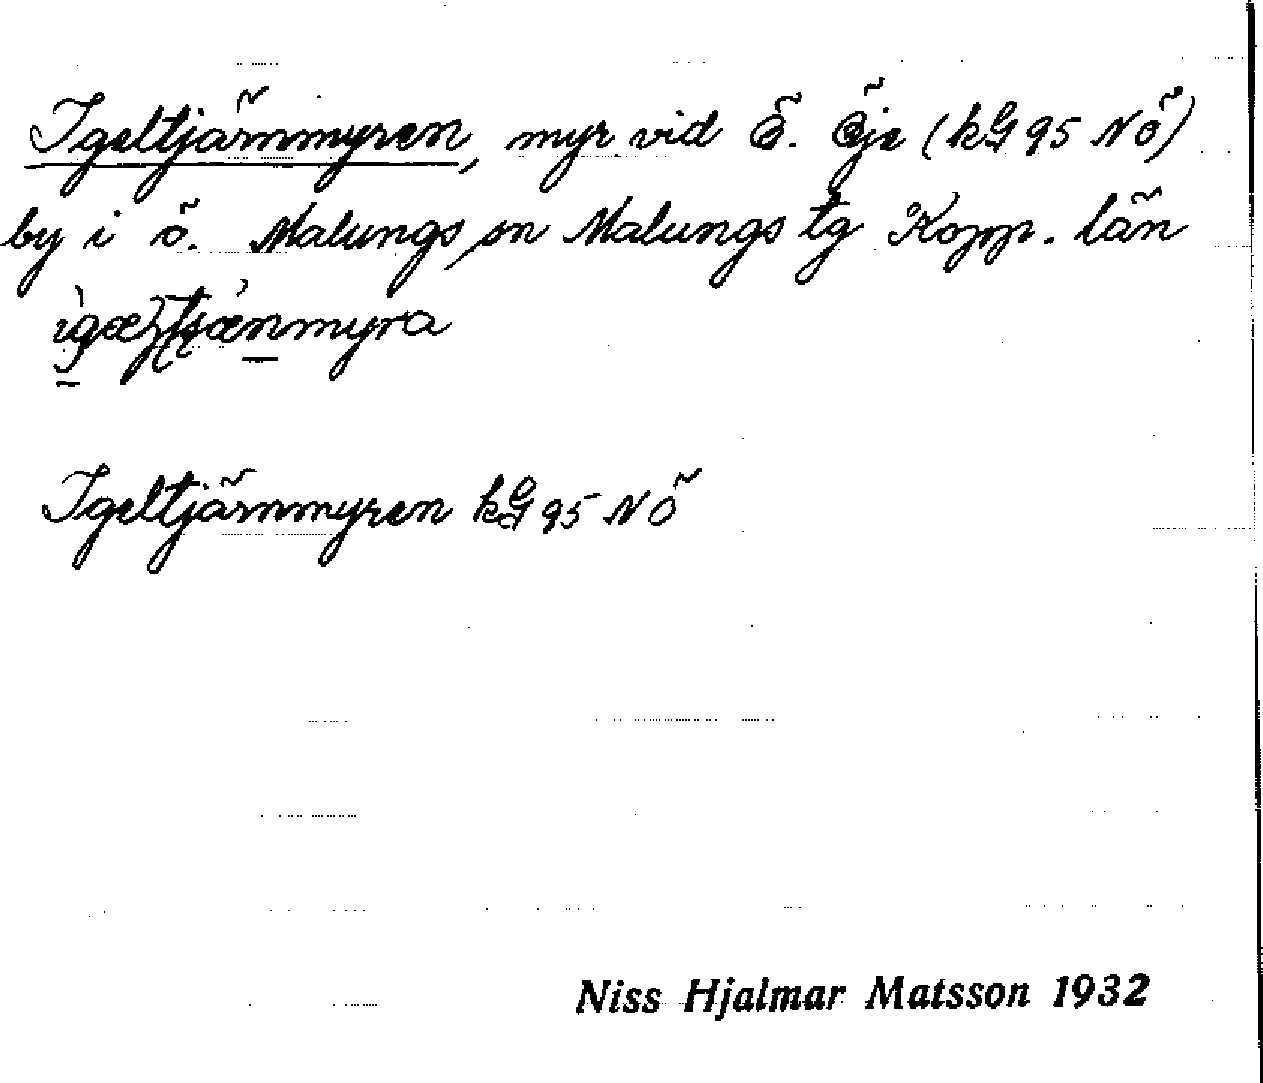 Igeltjärnmyren, myr vid Ö. Öje (kG 95 NÖ)
by i ö. Malungs sn Malungs tg Kopp. län
Igeltjärnmyren kG 95 NÖ
Niss Hjalmar Matsson 1932